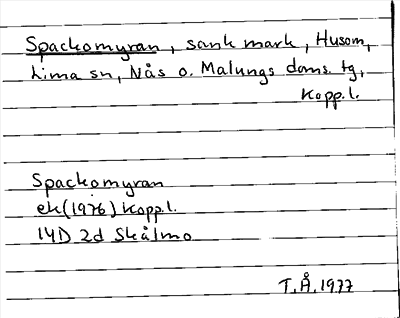 Spackomyran, sank mark, Husom,
Lima sn, Nås o. Malungs doms. tg,
Kopp.l.
Spackomyran
ek(1976) Kopp.l.
14D 2d Skålmo
T.Å.1977